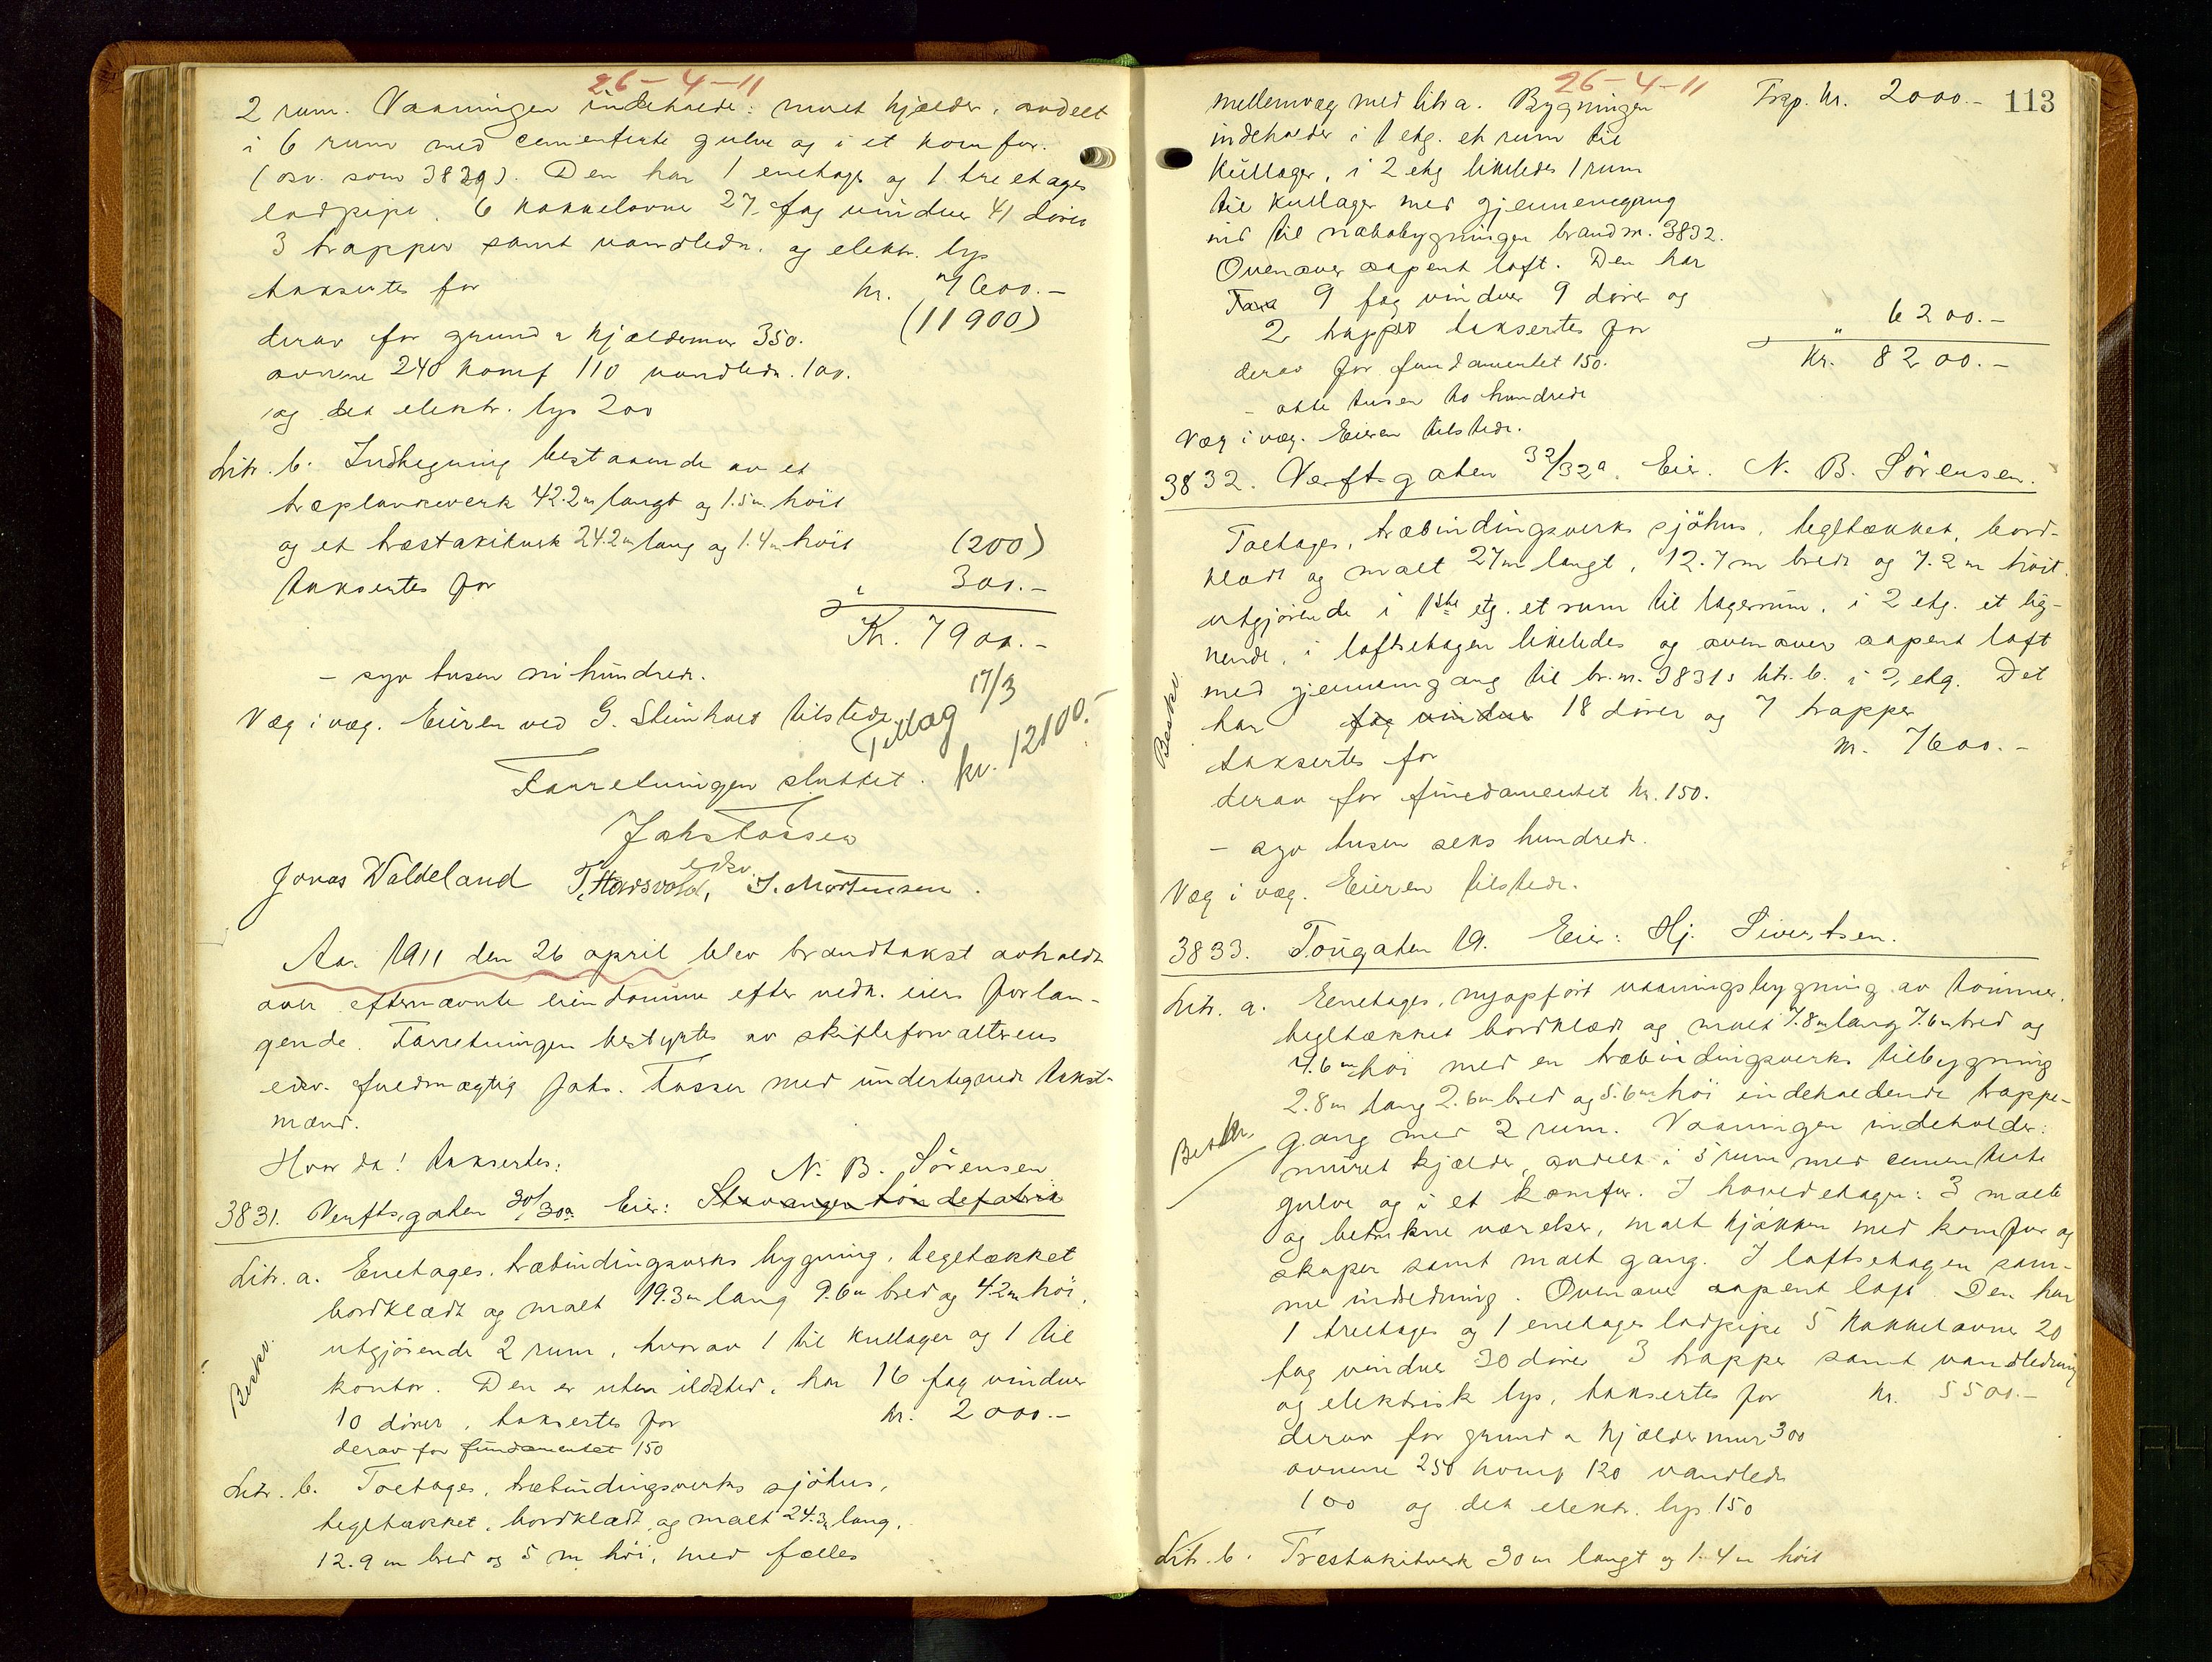 26-4-11
2 rum. Vaaningen indeholder: muret kjælder, avdelt
i 6 rum med cementerte gulve og i et komfur.
(osv. som 3829). Den har 1 enetages og 1 treetages
ladpipe, 6 kakkelovne 27 fag vinduer 41 dører
3 trapper samt vandledn. og elektr. lys
taksertes for kr. 7600.-
(11900)
derav for grund & kjældermur 350.
ovnene 240 komf 110 vandledn. 100.
og det elektr. lys 200
Litr. b. Indhegning bestaaende av et
træplankeverk 42.2m langt og 1.5m. høit
og et træstakitverk 24.2m lang og 1.4m høit (200)
taksertes for " 300.-
Kr. 7900.-
- syv tusen ni hundrede.
Væg i væg. Eieren ved G. Steinhaes tilstede.
Tillæg 17/3
kr. 12100.-
Forretningen sluttet.
Jahs Tossen
edsv.
Jonas Waldeland T. Horsvold, I. Mortensen.
Aar 1911 den 26 april blev brandtakst avholdt
over efternævnte eiendomme efter vedk. eiers forlan-
gende. Forretningen bestyrtes av skifteforvalterens
edsv. fuldmægtig Jahs. Tossen med undertegnede takst-
mænd.
Hvor da! taksertes:
N. B. Sörensen
3831. Verftsgaten 30/30a Eier: Stavanger töndefabrik
Litr. a. Enetages, træbindingsverks bygning, teglt­ækket
bordklædt og malt 19.3m lang 9.6m bred og 4.2m høi,
utgjørende 2 rum, hvorav 1 til kullager og 1 til
kontor. Den er uten ildsted, har 16 fag vinduer
10 dører, taksertes for kr. 2000.-
derav for fundamentet 150
Beskr.
Litr. b. Toetages, træbindingsverks sjöhus,
tegltækket, bordklædt, og malt 24.3m lang,
12.9m bred og 5 m. høi, med fælles
26-4-11
113
mellemvæg med litr a. Bygningen Trsp. kr. 2000.-
indeholder i 1 etg. et rum til
kullager, i 2 etg likeledes 1 rum
til kullager med gjennemgang
ind til nabobygningen brandnr. 3832.
Ovenover aapent loft. Den har
Tak 9 fag vinduer 9 dører og
2 trapper taksertes for " 6200.-
derav for fundamentet 150. Kr. 8200.-
- otte tusen to hundrede
Væg i væg. Eieren tilstede.
3832. Verftsgaten 32/32a. Eier. N. B. Sörensen.
Toetages, træbindingsverks sjöhus, tegltækket, bord-
klædt og malt 27m langt, 12.7m bredt og 7.2m høit
utgjørende i 1ste etg. et rum til lagerrum, i 2 etg. et lig-
nende, i loftsetagen likeledes og ovenover aapent loft
med gjennemgang til br.nr. 3831s litr. b. i 2 etg. Det
har fag vinduer 18 dører og 7 trapper
taksertes for kr. 7600.-
derav for fundamentet kr. 150.
- syv tusen seks hundrede.
Beskr.
Væg i væg. Eieren tilstede.
3833. Tougaten 19. Eier: Hj. Sivertsen.
Litr. a. Eenetages, nyopført vaaningsbygning av tømmer,
tegltækket bordklædt og malt 7.8m lang 7.6m bred og
4.6m høi med en træbindingsverks tilbygning
2.8m lang 2.6m bred og 5.6m høi indeholdende trappe-
gang med 2 rum. Vaaningen indeholder:
muret kjælder, avdelt i 5 rum med cementerte
gulve og i et komfur. I hovedetagen: 3 malte
og betrukne værelser, malt kjøkken med komfur og
skaper samt malt gang. I loftsetagen sam-
me indredning. Ovenover aapent loft. Den har
1 treetages og 1 enetages ladpipe 5 kakkelovne 20
fag vinduer 30 dører 3 trapper samt vandledning
og elektrisk lys, taksertes for kr. 5500.-
derav for grund & kjældermur 300
ovnene 250 komf 120 vandledn
100 og det elektr. lys 150
Beskr.
Litr. b. Træstakitverk 30m langt og 1.4m høit